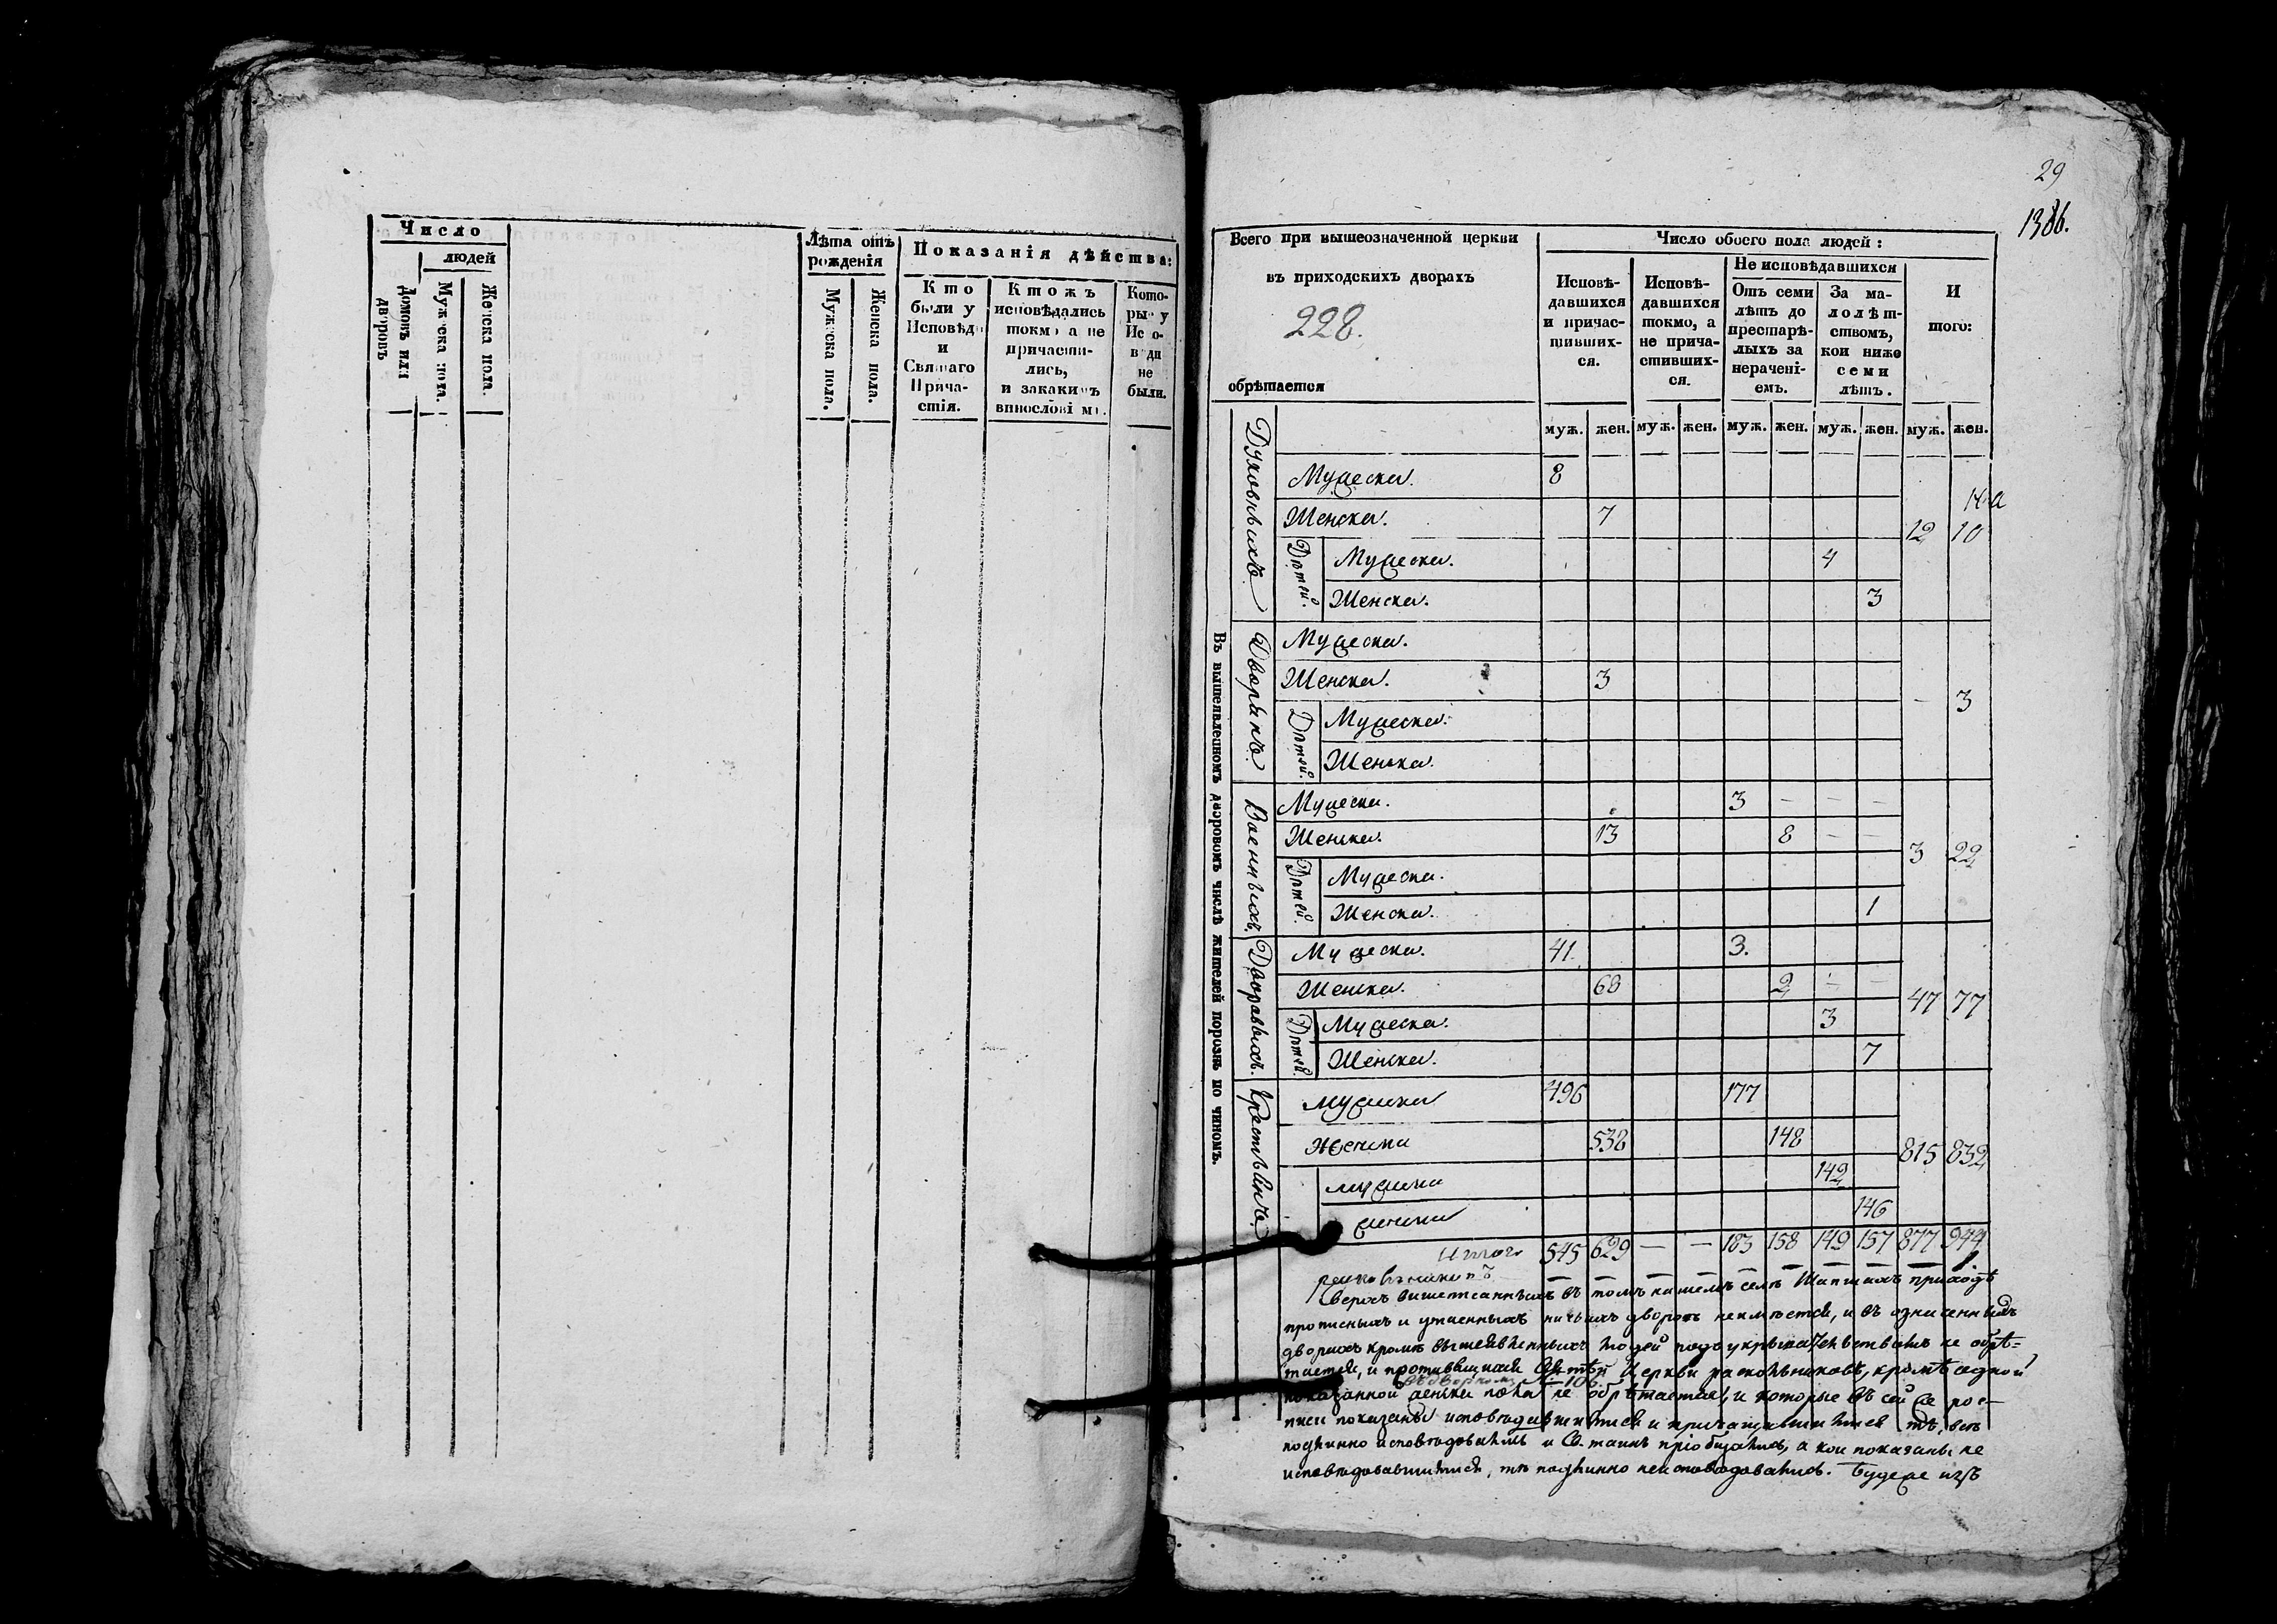 Число
людей
домовъ или дворовъ
Мужеска пола.
Женска пола.
Лѣта отъ рожденія
Мужеска пола.
Женска пола.
Показанія дѣйства:
Кто были у Исповѣди и Святаго Прича- стія.
Ктожъ исповѣдались токмо а не причасти- лись, и закакимъ
Кото- рые у Испо- вѣди не были.
29
1386.
Всего при вышеозначенной церкви
въ приходскихъ дворахъ
228.
обрѣтается
Число обоего пола людей:
Исповѣ- давшихся и причас- тивших- ся.
Исповѣ- давшихся токмо, а не прича- стивших- ся.
Не исповѣдавшихся
Отъ семи лѣтъ до престарѣ- лыхъ за нерачені- емъ.
За ма- лолѣт- ствомъ, кои ниже семи лѣтъ.
И того:
муж. жен. муж. жен. муж. жен. муж. жен. муж. жен.
Въ вышеявленномъ дворовомъ числѣ жителей порознь по чиномъ.
Духовныхъ
Мужеска. 8
Женска. 7
12 10
Дѣтей.
Мужеска. 4
Женска. 3
Дворянъ
Мужеска.
Женска. 3
- 3
Дѣтей.
Мужеска.
Женска.
Военныхъ.
Мужеска. 3 - - -
Женска. 13 8 - -
3 22
Дѣтей.
Мужеска.
Женска. 1
Дворовыхъ.
Мужеска. 41. 3.
Женска. 68 2 - -
47 77
Дѣтей.
Мужеска. 3
Женска. 7
Крестьянъ
Мужеска 496 177
Женска 538 148
815 832
мужеска 142
женска 146
Итого 545 629 — — 183 158 149 157 877 944
Сверхъ вышеписанныхъ въ томъ нашемъ селѣ приходѣ
прописныхъ и утаенныхъ ничьихъ дворовъ неимѣется, и въ означенныхъ
дворахъ кромѣ вышеявленныхъ людей подъ укрывательствомъ не обрѣ-
тается, и противящихся Святѣй Церкви раскольниковъ, кромѣ одной
показанной женска пола не обрѣтается, и которые въ сей же рос-
писи показаны исповѣдавшимися и причащавшимися тѣ, всѣ
подлинно исповѣдовались и Св. таинъ пріобщались, а кои показаны не
исповѣдовавшимися, тѣ подлинно неисповѣдовались. Будеже изъ